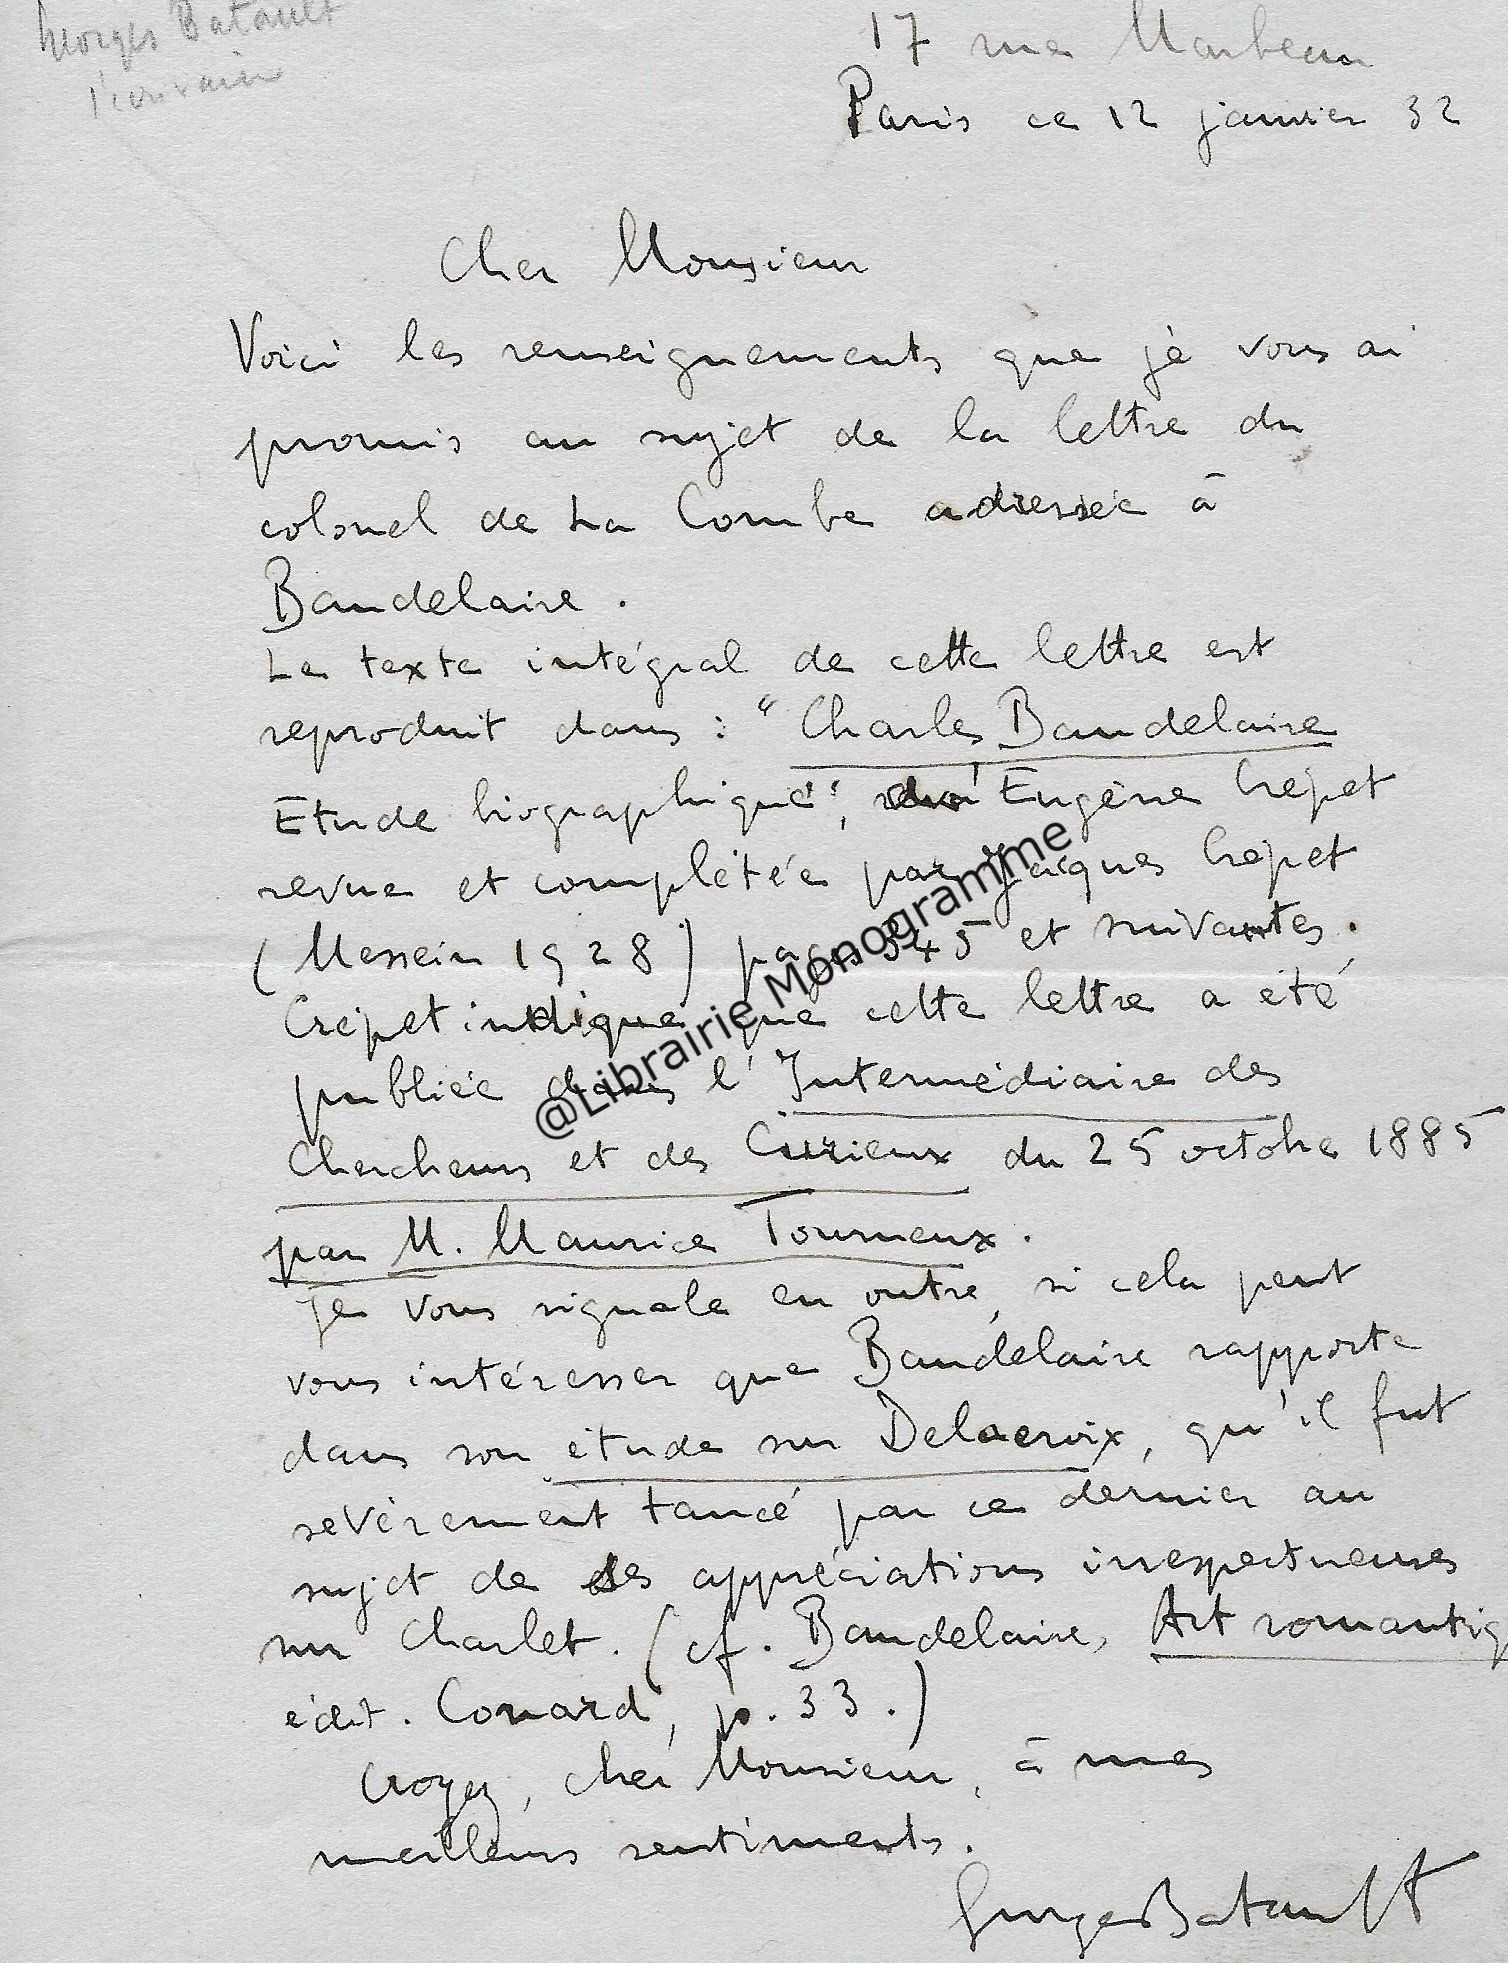 Georges Batault
l'écrivain
17 rue Marbeau
Paris ce 12 janvier 32
Cher Monsieur
Voici les renseignements que je vous ai
promis au sujet de la lettre du
colonel de La Combe adressée à
Baudelaire.
Le texte intégral de cette lettre est
reproduit dans : "Charles Baudelaire
Etude biographique", d'Eugène Crépet
revue et complétée par Jacques Crépet
(Messein 1928) pages 345 et suivantes.
Crépet indique que cette lettre a été
publiée dans l'Intermédiaire des
Chercheurs et des Curieux du 25 octobre 1885
par M. Maurice Tourneux.
Je vous signale en outre, si cela peut
vous intéresser que Baudelaire rapporte
dans son étude sur Delacroix, qu'il fut
sévèrement tancé par ce dernier au
sujet de ses appréciations irrespectueuses
sur Charlet. (cf. Baudelaire, Art romantiq
édit. Conard, p. 33.)
Croyez, cher Monsieur, à mes
meilleurs sentiments.
Georges Batault
@Librairie Monogramme